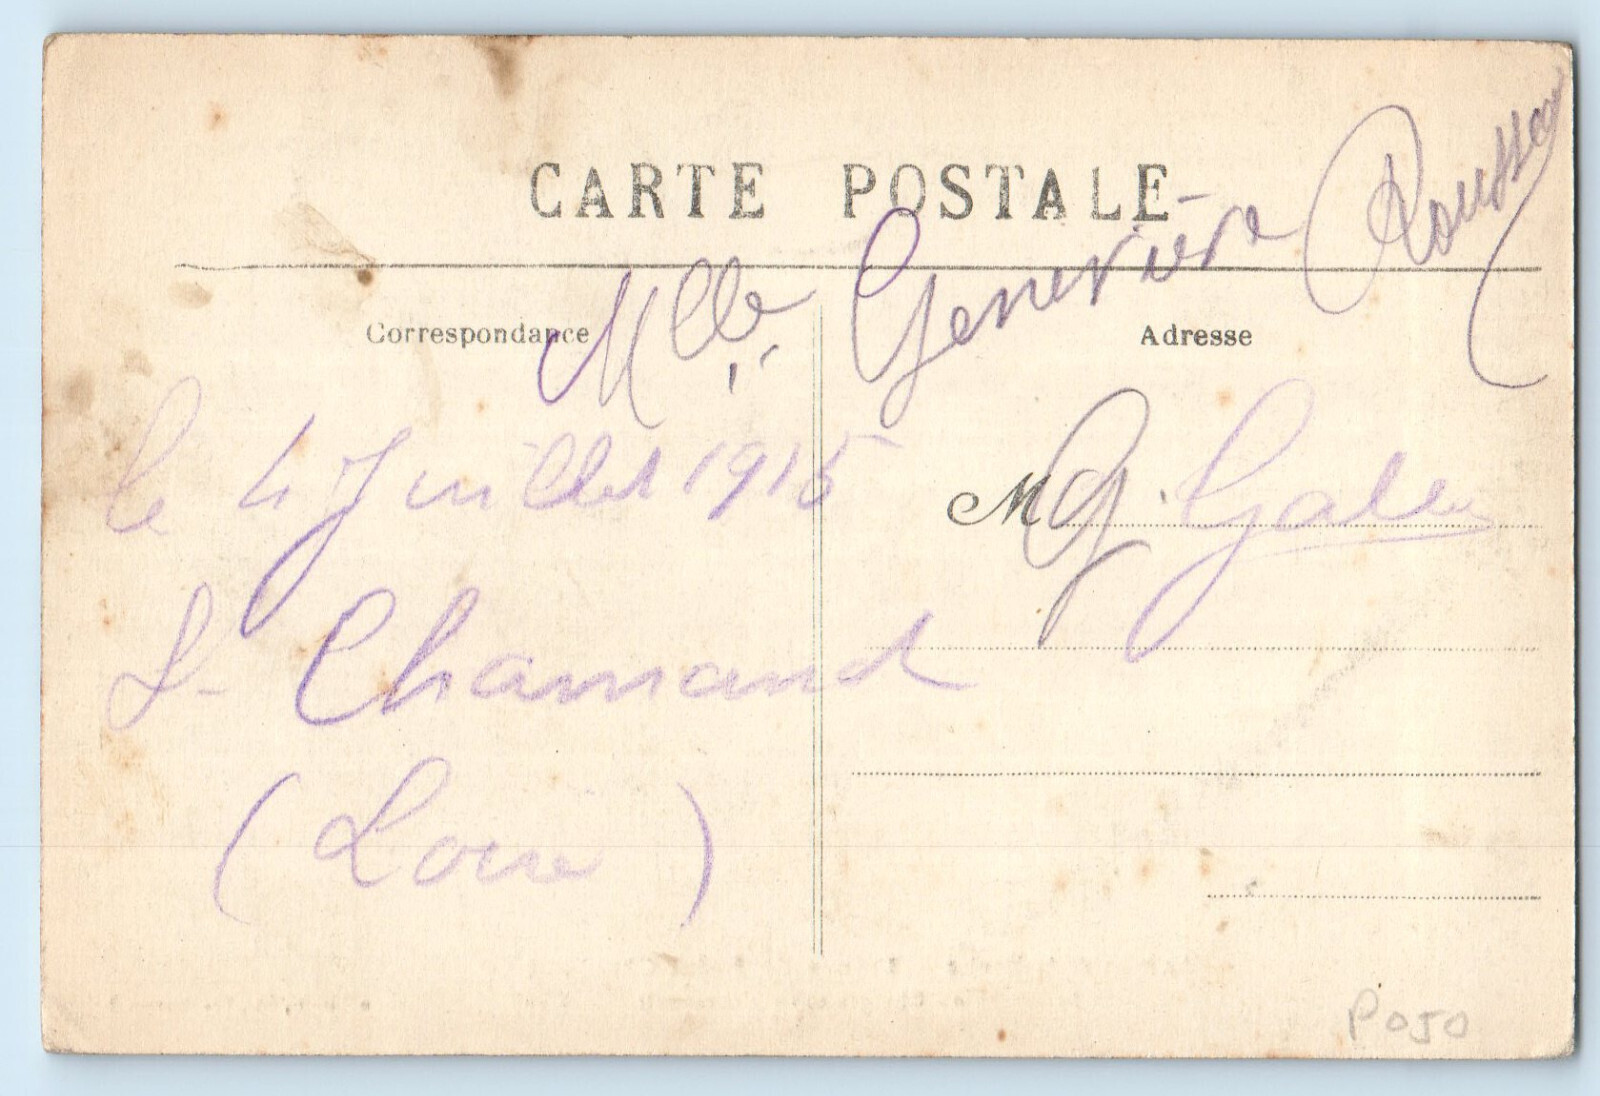 CARTE POSTALE
Mlle Geneviève Rousson
Correspondance
Adresse
le 4 Juillet 1915
M G. Galle
St Chamand
(Loire)
P050